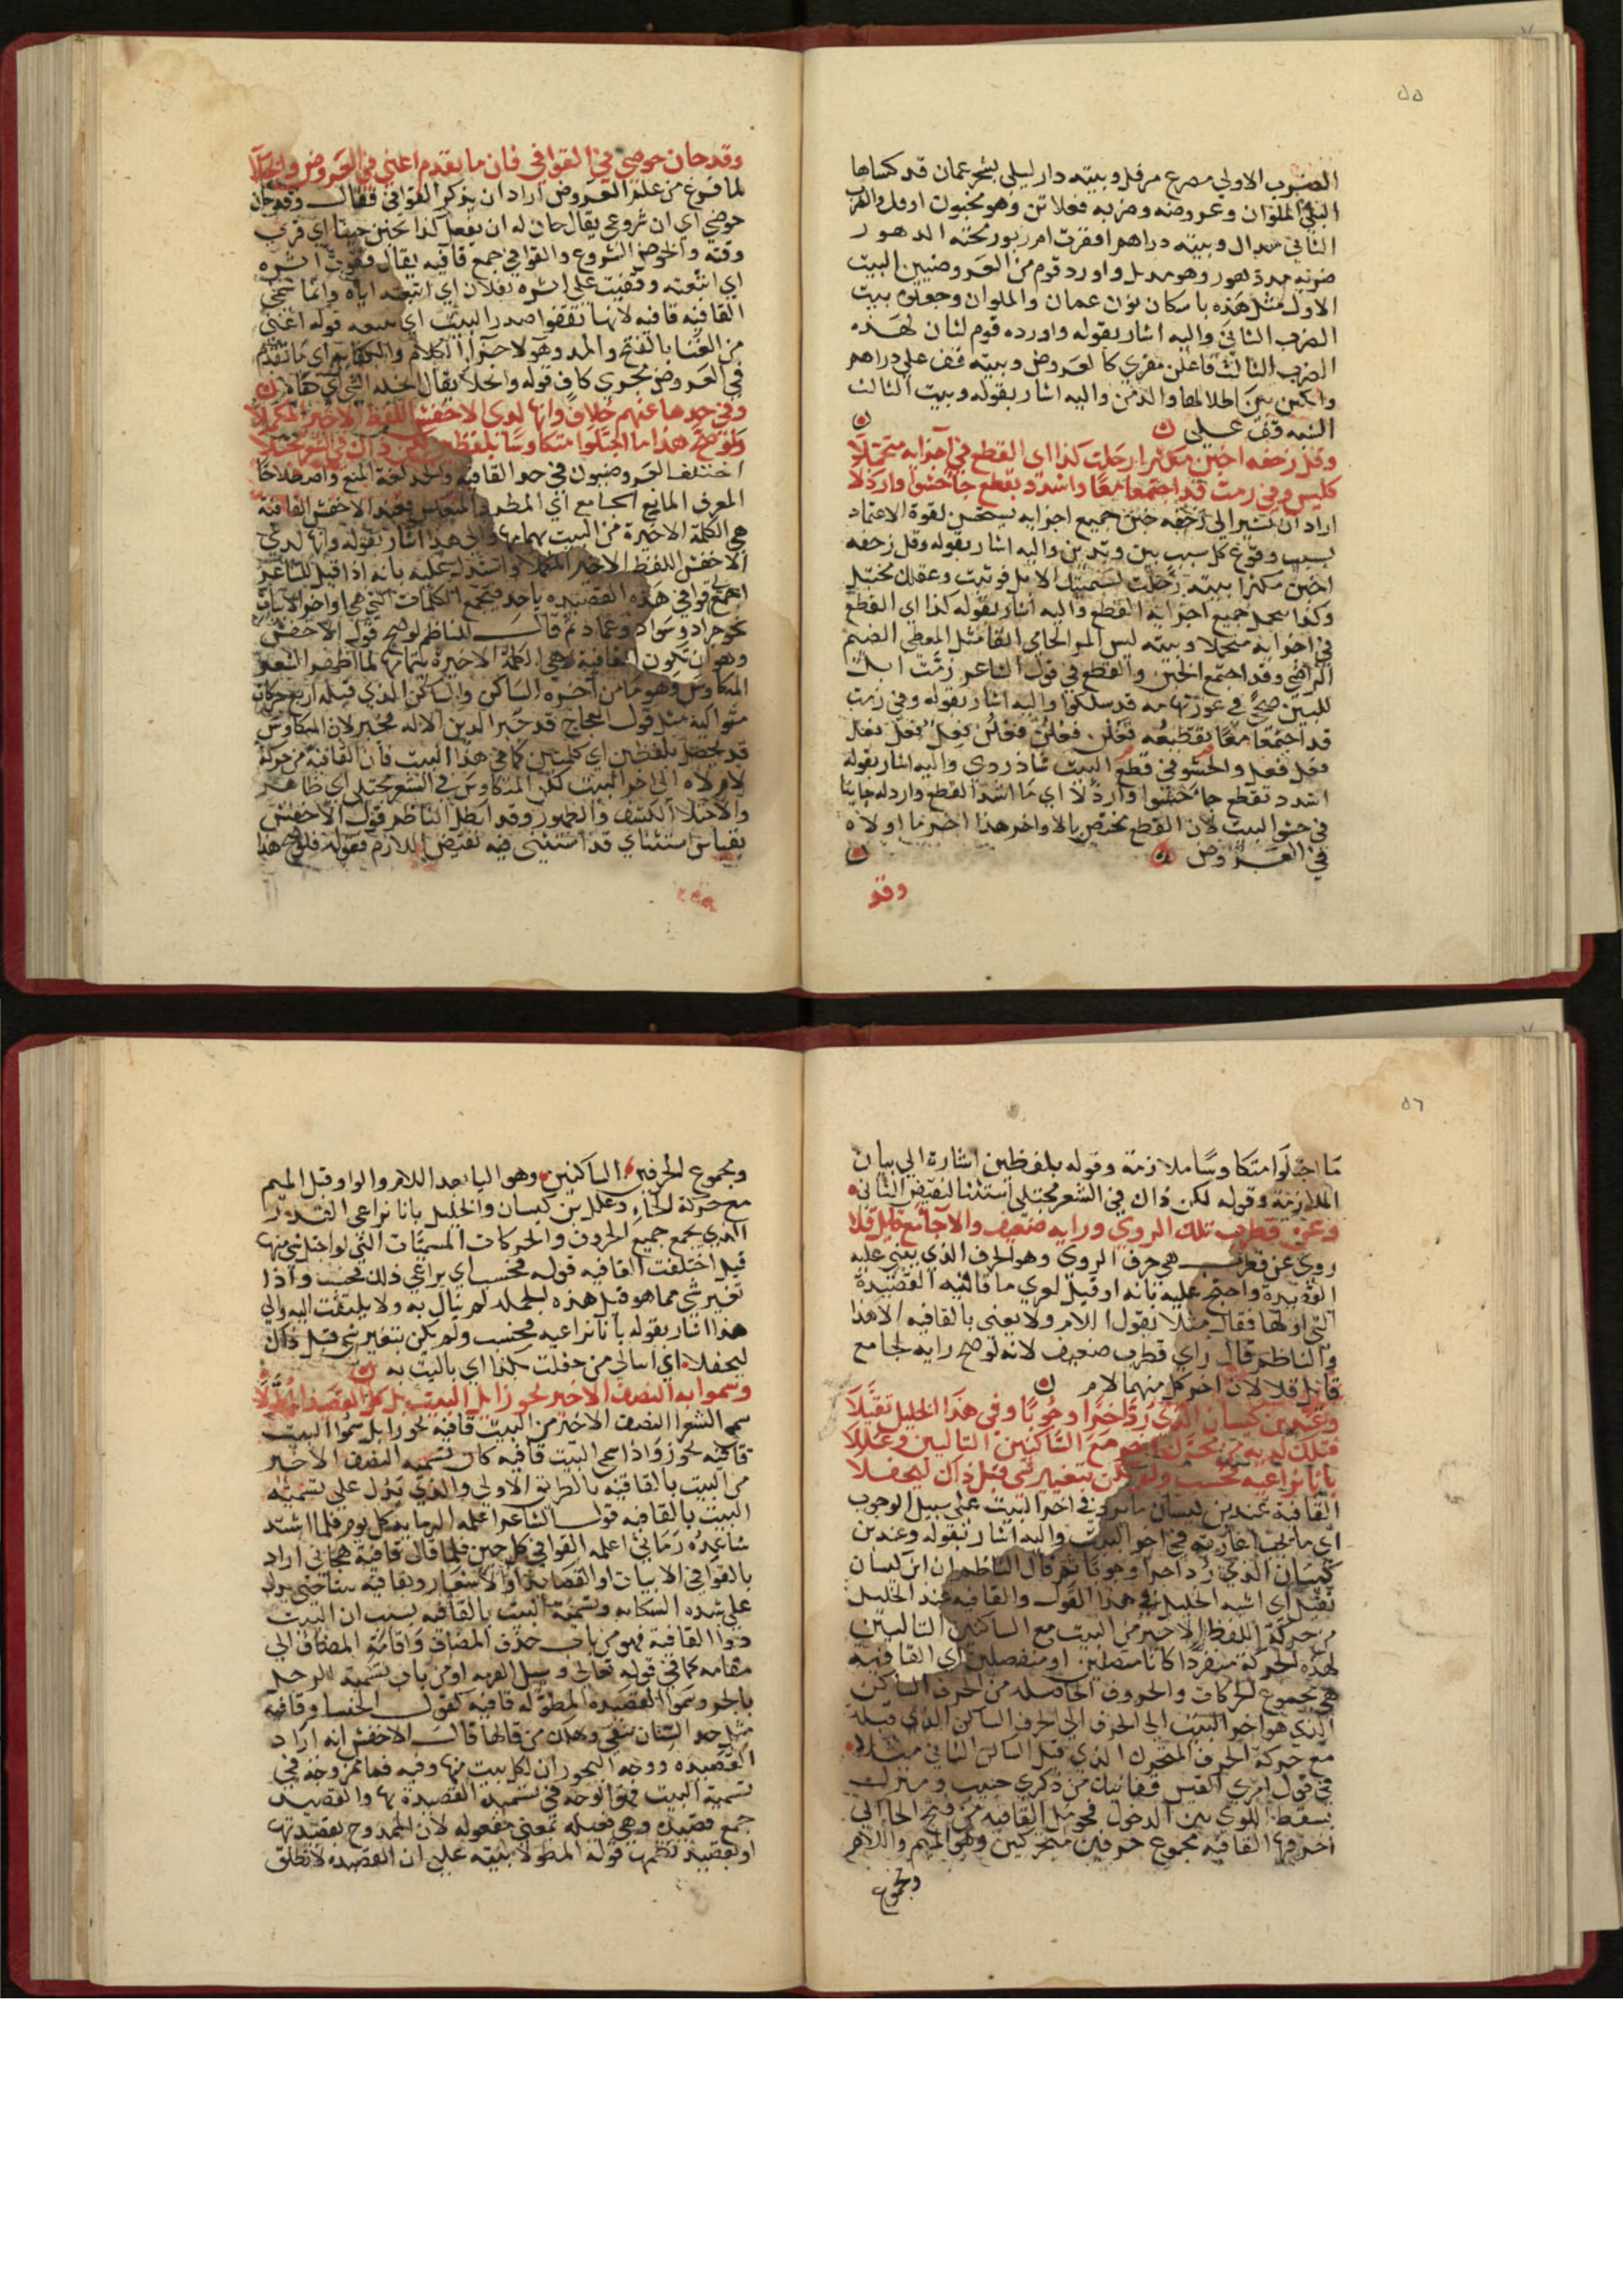 ٥٥
الضرب الاولي مصرع مرفل وبيته دار ليلي بشحر عمان قد كساها
البلي الملوان وعروضه وضربه فعلاتن وهو مخبون ارفل والضرب
الثاني مدال وبيته دراهم اقفرت ام زبور محته الدهور
ضربه مدة لهور وهو مديل واورد قوم من العروضيين البيت
الاول مثل هذه باسكان نون عمان والملوان وجعلوه بيت
الضرب الثاني واليه اشار بقوله واورده قوم لثان لهذه
الضرب الثالث فاعلن معري كالعروض وبيته قف علي دراهم
وابكين بين اطلالها والدمن واليه اشار بقوله وبيت الثالث
النبه قف علي
وقل زحفه اخبن مكثرا رحلت كذا اي القطع في اجزايه متحملا
كليس وفي زمت قد اجتمعا معا واشدد بقطع جا حشوا واردلا
اراد ان يشير الي زحفه خبن جميع اجزايه يستحسن لقوة الاعتماد
بسبب وقوع كل سبب بين وتدين واليه اشار بقوله وقل زحفه
اخبن مكثرا بيته زحلت
وكذا جميع اجزايه القطع واليه اشار بقوله كذا اي القطع
في اجزايه متحملا وبيته ليس المر الحامي انفا مثل المعطي الضيم
الراضي وقد اجتمع الخبن والقطع في قول الشاعر زمت ابل
للبين ضحي في غور تهامه قد سلكوا واليه اشار بقوله وفي زمت
قد اجتمعا معا تقطيعه فعلن فعلن فعلن فعل فعل فعل
فعل فعل والحشو في قطع البيت شاذ ردي واليه اشار بقوله
اشدد بقطع جا حشوا واردلا اي ما اشد القطع واردله جايا
في حشو البيت لان القطع يختص بالاواخر هذا اخر ما اولاه
في العروض
وقد
وقد حان حوضي في القوافي فان ما تقدم اغني في العروض وانجلا
لما فرغ من علم العروض اراد ان يذكر القوافي فقال وقد حان
حوضي اي ان شروعي يقال حان له ان يفعل كذا يحين حينا اي قرب
وقته والخوض الشروع والقوافي جمع قافيه يقال قفوت اثره
اي اتبعته وقفيت علي اثره بفلان اي اتبعته اياه وانما سمي
القافيه قافيه لانها تقفوا صدر البيت اي تتبعه قوله اغني
من الغنا بالفتح والمد وهو لاحتوا الكلام والكفايه اي ما تقدم
في العروض محوي كاف قوله وانجلا يقال
وفي حدها عنهم خلاف وانها لدي الاخفش اللفظ الاخير المكملا
ولو صح هذا ما اجتلوا متكاوسا بلفظين لكن ذاك في الشعر مجتلا
اختلف العروضيون في حد القافيه والحد لغة المنع واصطلاحا
المعرف المانع الجامع اي المطرد والمنعكس فعند الاخفش القافية
هي الكلمة الاخيرة من البيت بتمامها والي هذا اشار بقوله وانها لدي
الاخفش اللفظ الاخير المكملا واستدل عليه بانه اذا قيل للشاعر
اجمع قوافي هذه القصيده ياخذ فيجمع الكلمات التي هي اواخر الابيات
نحو جراد وسواد وعماد ثم قال الناظم لو صح قول الاخفش
وهو ان تكون القافية هي الكلمة الاخيرة بتمامها لما
المتكاوس وهو ما من اخره الساكن والساكن الذي قبله اربع حركات
متوالية مثل قول العجاج قد جبر الدين الاله فجبر لان المتكاوس
قد يحصل بلفظين اي كلمتين كما في هذا البيت فان القافيه من حركة
لام لاه الي اخر البيت لكن المتكاوس في الشعر مجتلي اي ظاهر
والاجتلا الكشف والظهور وقد ابطل الناظم قول الاخفش
بقياس استثناي قد استثني فيه نقيض اللازم فقوله فلو صح هذا
٥٦
ما اجتلوا متكاوسا ملازمة وقوله بلفظين اشارة الي بيان
الملازمة وقوله لكن ذاك في الشعر مجتلي استثنا لنقيض الثاني
وعن قطرب تلك الروي ورايه ضعيف والا جامع قايل قلا
روي عن قطرب هي حرف الروي وهو الحرف الذي يبني عليه
القصيدة واحتج عليه بانه لو قيل لعربي ما قافيه القصيدة
التي اولها فقال مثلا يقول اللام ولا يعني بالقافيه الا هذا
والناظم قال راي قطرب ضعيف لانه لو صح رايه لجامع
قايل قلا لان اخر كل منهما لام
وعند بن كيسان الذي رد اخرا وجوبا وفي هذا الخليل تقبلا
فتلك لديه من محرك مع الساكنين التاليين وعللا
بانا نراعيه فحسب ولم يكن بتغيير شي قبل ذاك ليحفلا
القافية عند بن كيسان ما يرد في اخر البيت علي سبيل الوجوب
اي ما يجب اعادته في اخر البيت واليه اشار بقوله وعند بن
كيسان الذي رد اخرا وجوبا ثم قال الناظم ان ابن كيسان
تقبل اي اشبه الخليل في هذا القول والقافيه عند الخليل
من حركة اللفظ الاخير من البيت مع الساكنين التاليين
لهذه الحركة منفردا كانا متصلين او منفصلين اي القافية
هي مجموع الحركات والحروف الحاصله من الحرف الساكن
الذي هو اخر البيت الي الحرف الساكن الذي قبله
مع حركة الحرف المتحرك الذي قبل الساكن الثاني مثلا
في قول امري القيس قفا نبك من ذكري حبيب ومنزل
بسقط اللوي بين الدخول فحومل القافيه من فتح الحا الي
اخر فها القافية مجموع حرفين متحركين وهو الميم واللام
ومجموع
ومجموع الحرفين الساكنين وهو اليا بعد اللام والواو قبل الميم
مع حركة الحاء وعلل بن كيسان والخليل بانا نراعي القدر
الذي يجمع جميع الحروف والحركات المسميات التي لو اختل شي منها
قيل اختلفت القافيه قوله فحسب اي يراعي ذلك فحسب واذا
تغير شي مما هو قبل هذه الجمله لم نبال به ولا يلتفت اليه والي
هذا اشار بقوله بانا نراعيه فحسب ولم يكن بتغير شي قبل ذاك
ليحفلا اي ابالي من حفلت بكذا اي باليت به
وسموا به النصف الاخير نحو زابل البيت بل كل القصيد المطولا
سمي الشعرا النصف الاخير من البيت قافية نحو زا بل سموا البيت
قافيه نحوزوا اذا سمي البيت قافيه كان تسميه النصف الاخير
من البيت بالقافيه بالطريق الاولي والذي يدل علي تسميه
البيت بالقافيه قول الشاعر اعلمه الرمايه كل يوم فلما اشتد
ساعده رماني اعلمه القوافي كل حين فلما قال قافية هجاني اراد
بالقوافي الابيات او القصايد او الاشعار وبقافيه بيتا
علي شده الشكايه وتسمية البيت بالقافيه بسبب ان البيت
ذوا القافية فهو من باب حذف المضاف واقامة المضاف الي
مقامه كما في قوله تعالي وسل القريه او من باب تسمية الرجل
بالجر وسموا القصيده المطوله قافية كقول الخنسا وقافية
مثل حد السنان تبقي وهلك من قالها قال الاخفش انه اراد
القصيده ووجه التجوز ان لكل بيت منها وفيه فما مر وجه في
تسمية البيت فهو الوجه في تسميه القصيدة بها والقصيد
جمع قصيده وهي فعيله بمعني مفعوله لان الممدوح يقصد بها
او بقصيد نظمها قوله المطولا بنيه علي ان القصيده لا تطلق